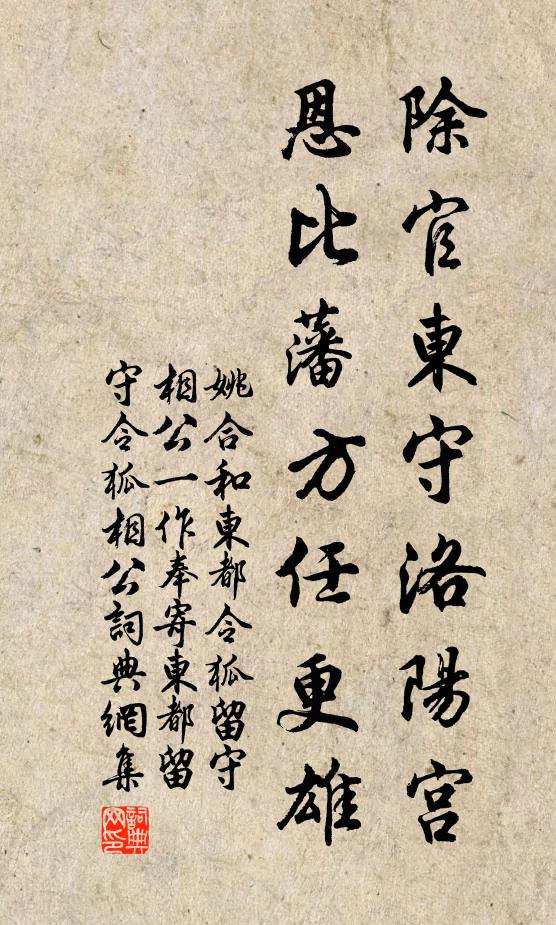 除官東守洛陽宮
恩比藩方任更雄
姚合和東都令狐留守
相公一作奉寄東都留
守令狐相公詞典網集
詞典网印